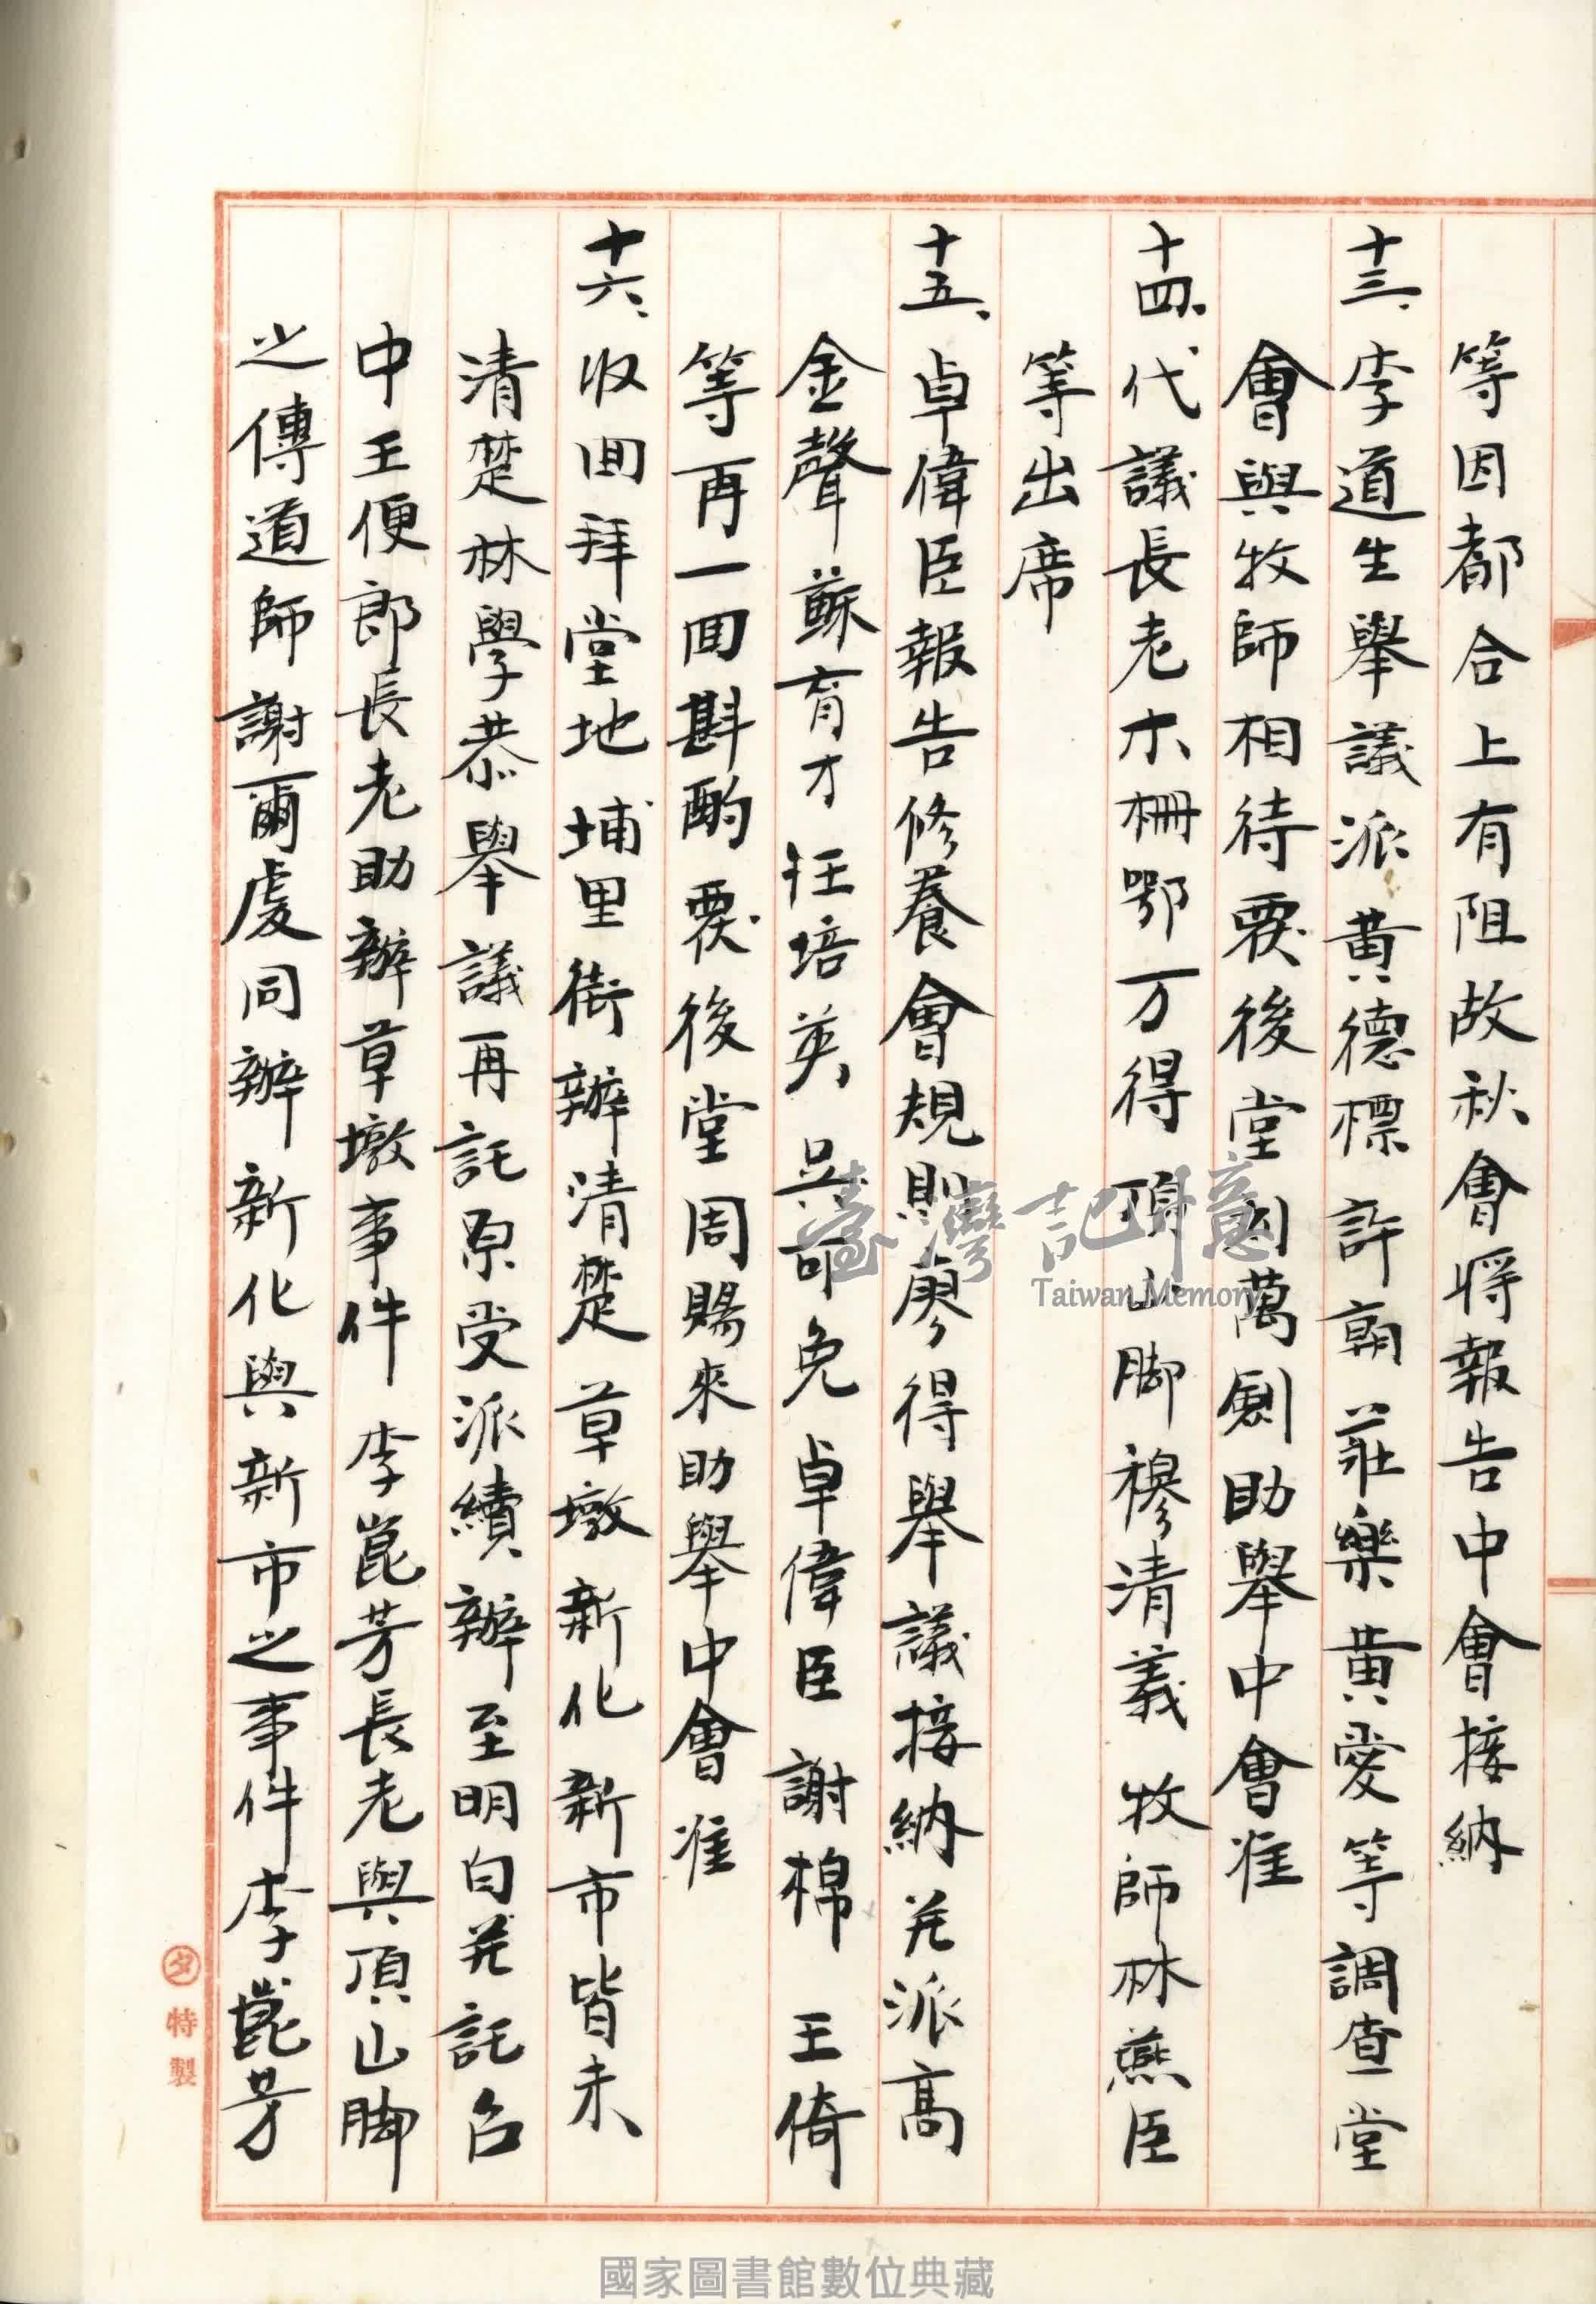 等因都合上有阻故秋會將報告中會接納
十三、李道生舉議派黃德標 許朝 莊樂 黃愛等調查堂
會與牧師相待要後堂 萬劍助舉中會准
十四、代議長老木柵鄂万得 頂山脚穆清義 牧師林燕臣
等出席
十五、卓偉臣報告修養會規則廖得舉議接納並派高
金聲 蘇育才 汪培英 吳 免 卓偉臣 謝棉 王倚
等再一回斟酌 要後堂周賜來助舉中會准
十六、收回拜堂地埔里街辦清楚 草墩 新化 新市皆未
清楚林學恭舉議再託原受派續辦至明白並託台
中王便郎長老助辦草墩事件 李崑芳長老與頂山脚
之傳道師謝爾處同辦新化與新市之事件李崑芳
臺灣記憶
Taiwan Memory
タ特製
國家圖書館數位典藏